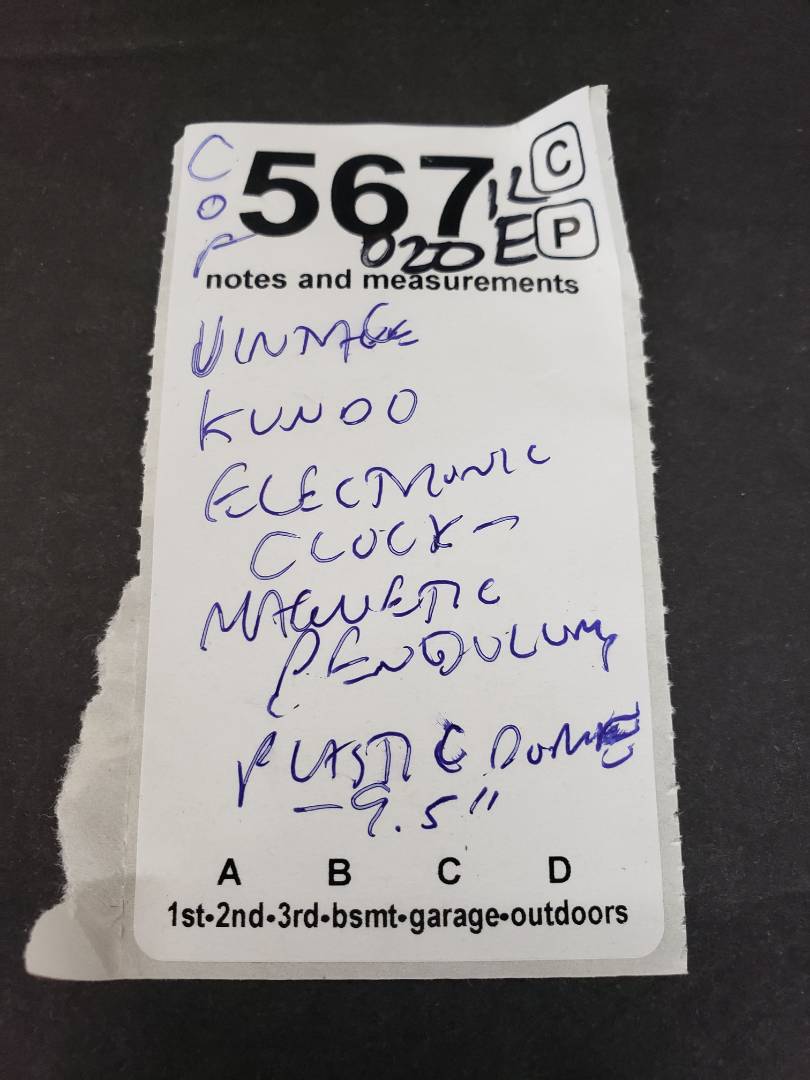 COP
567 IL C
020 E P
notes and measurements
VINTAGE
KUNDO
ELECTRONIC
CLOCK-
MAGNETIC
PENDULUM
PLASTIC DOME
- 9.5"
A B C D
1st•2nd•3rd•bsmt•garage•outdoors